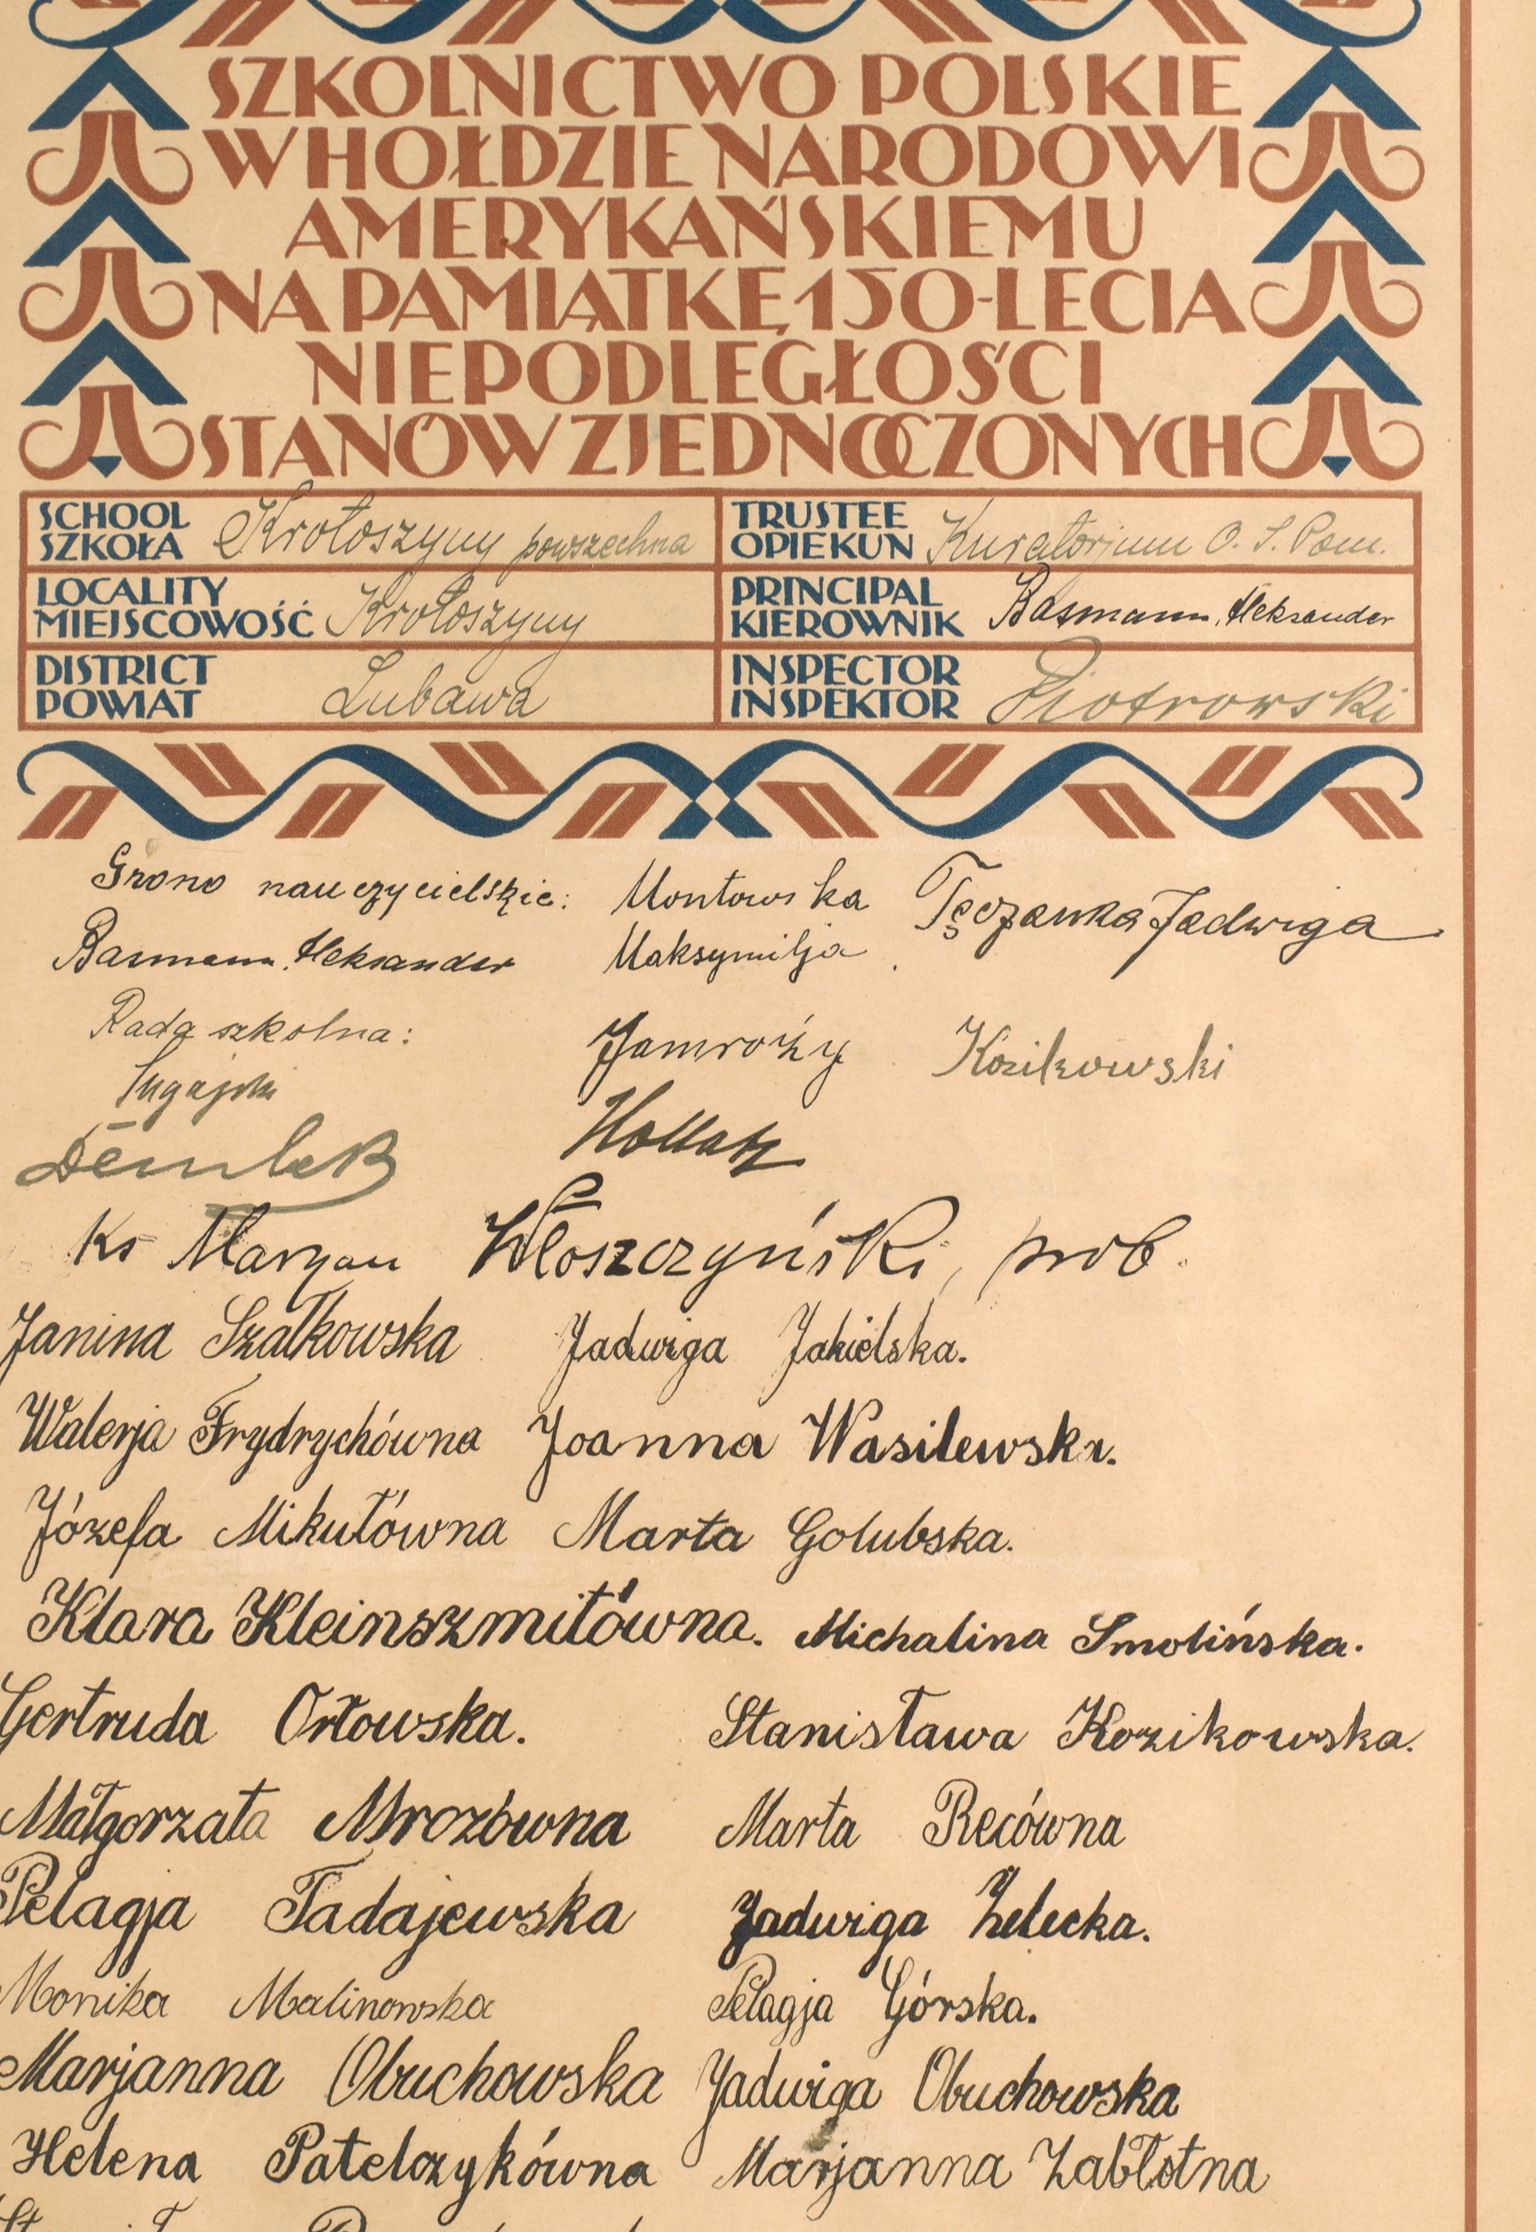 SZKOLNICTWO POLSKIE
W HOŁDZIE NARODOWI
AMERYKAŃSKIEMU
NA PAMIĄTKĘ 150-LECIA
NIEPODLEGŁOŚCI
STANÓW ZJEDNOCZONYCH
SCHOOL
SZKOŁA Krotoszyny powszechna
TRUSTEE
OPIEKUN Kuratorjum O. S. Pom.
LOCALITY
MIEJSCOWOŚĆ Krotoszyny
PRINCIPAL
KIEROWNIK Basmann, Aleksander
DISTRICT
POWIAT Lubawa
INSPECTOR
INSPEKTOR Piotrowski
Grono nauczycielskie: Montowska Tęczanka Jadwiga
Basmann, Aleksander Maksymilja
Rada szkolna: Jamroży Kozikowski
Hollatz
ks Maryan Włoszczyński, prob.
Janina Szałkowska Jadwiga Jakielska.
Walerja Frydrychówna Joanna Wasilewska.
Józefa Mikutówna Marta Golubska.
Klara Kleinszmitówna. Michalina Smolińska.
Gertruda Orłowska. Stanisława Kozikowska.
Małgorzata Mrozówna Marta Recówna
Pelagja Tadajewska Jadwiga Zelecka.
Monika Malinowska Pelagja Górska.
Marjanna Obuchowska Jadwiga Obuchowska
Helena Patelczykówna Marjanna Zabłotna